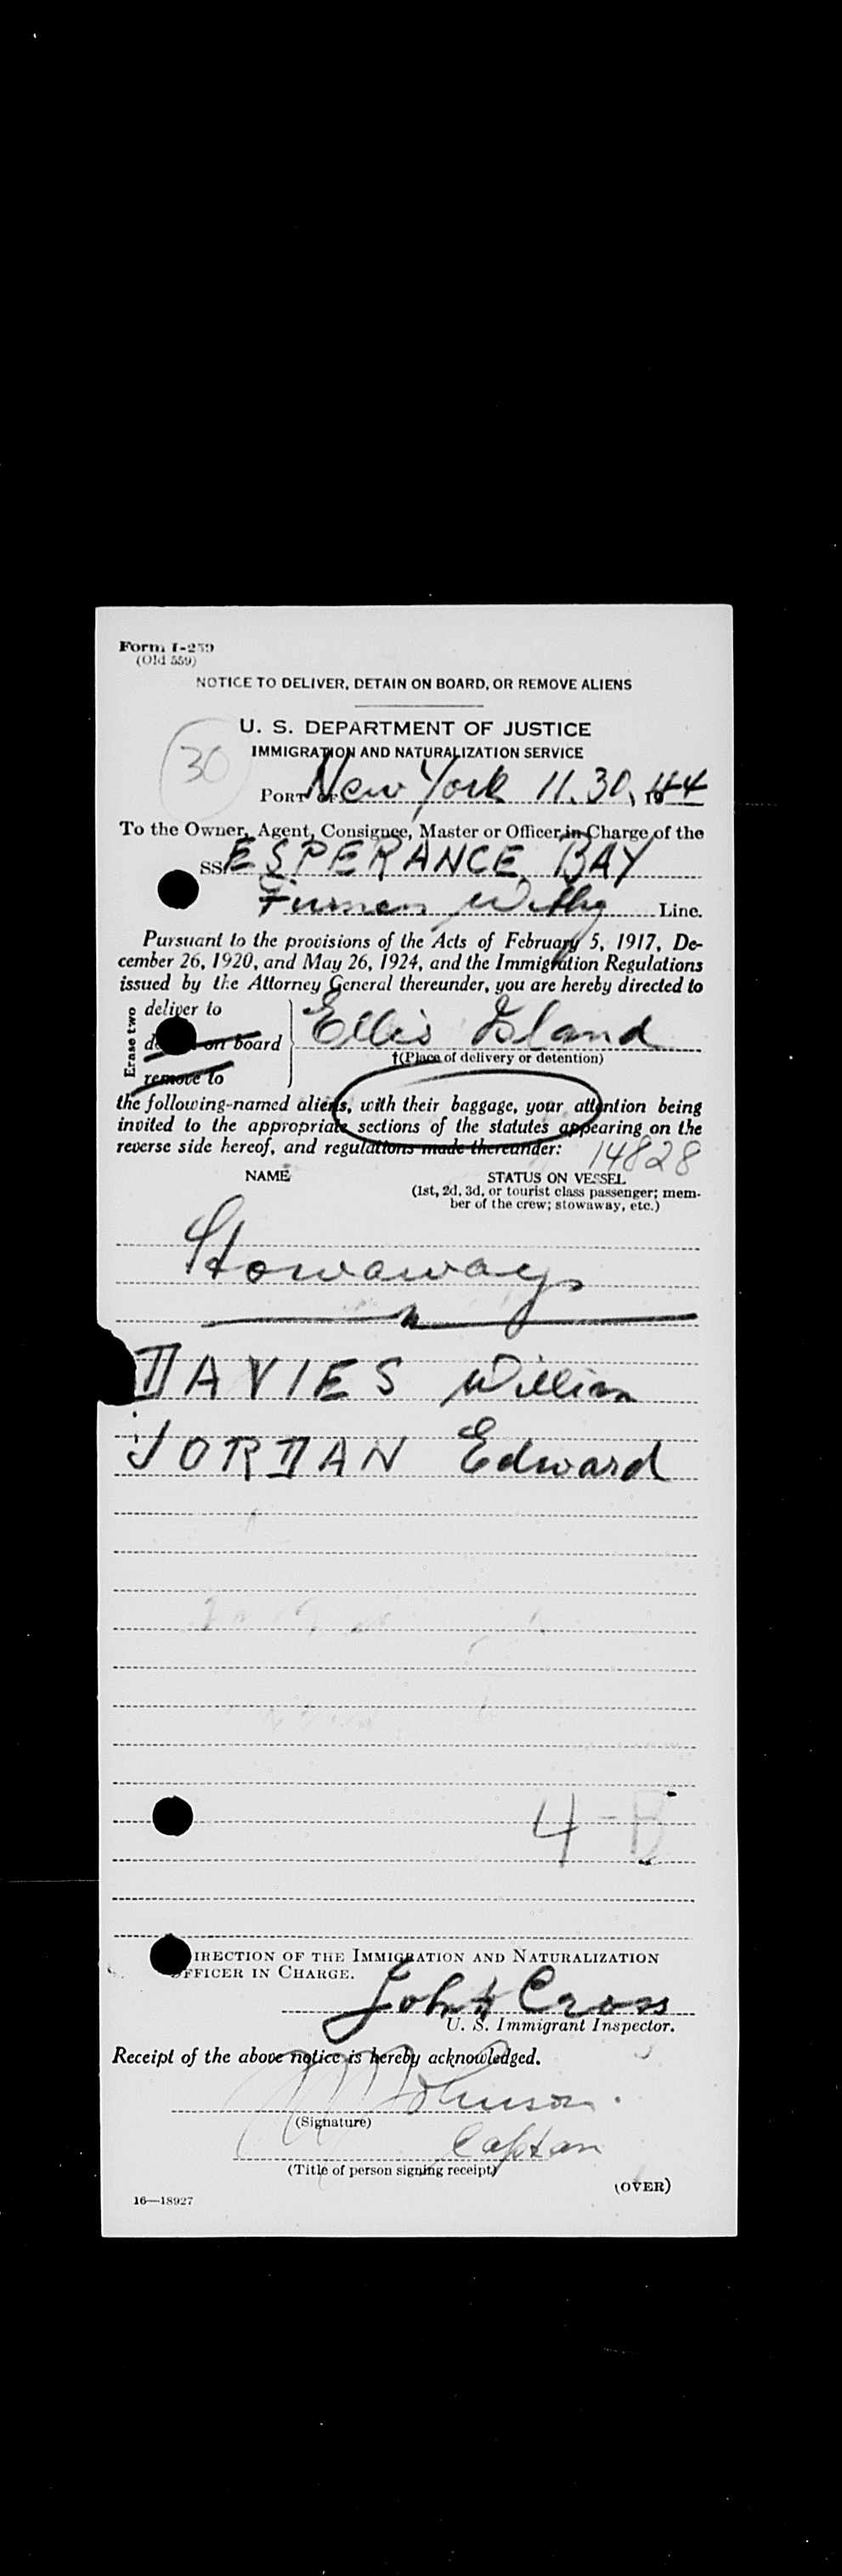 Form I-259
(Old 559)
NOTICE TO DELIVER, DETAIN ON BOARD, OR REMOVE ALIENS
U. S. DEPARTMENT OF JUSTICE
30
IMMIGRATION AND NATURALIZATION SERVICE
PORT OF New York 11.30, 1944
To the Owner, Agent, Consignee, Master or Officer in Charge of the
SS ESPERANCE BAY
Furness Withy Line.
Pursuant to the provisions of the Acts of February 5, 1917, De-
cember 26, 1920, and May 26, 1924, and the Immigration Regulations
issued by the Attorney General thereunder, you are hereby directed to
Erase two
deliver to
on board
remove to
Ellis Island
†(Place of delivery or detention)
the following-named aliens, with their baggage, your attention being
invited to the appropriate sections of the statutes appearing on the
reverse side hereof, and regulations made thereunder:
14828
NAME STATUS ON VESSEL
(1st, 2d, 3d, or tourist class passenger; mem-
ber of the crew; stowaway, etc.)
Stowaways
DAVIES William
JORDAN Edward
4-B
DIRECTION OF THE IMMIGRATION AND NATURALIZATION
OFFICER IN CHARGE.
John Cross
U. S. Immigrant Inspector.
Receipt of the above notice is hereby acknowledged.
Johnson.
(Signature)
Captan
(Title of person signing receipt)
(OVER)
16—18927